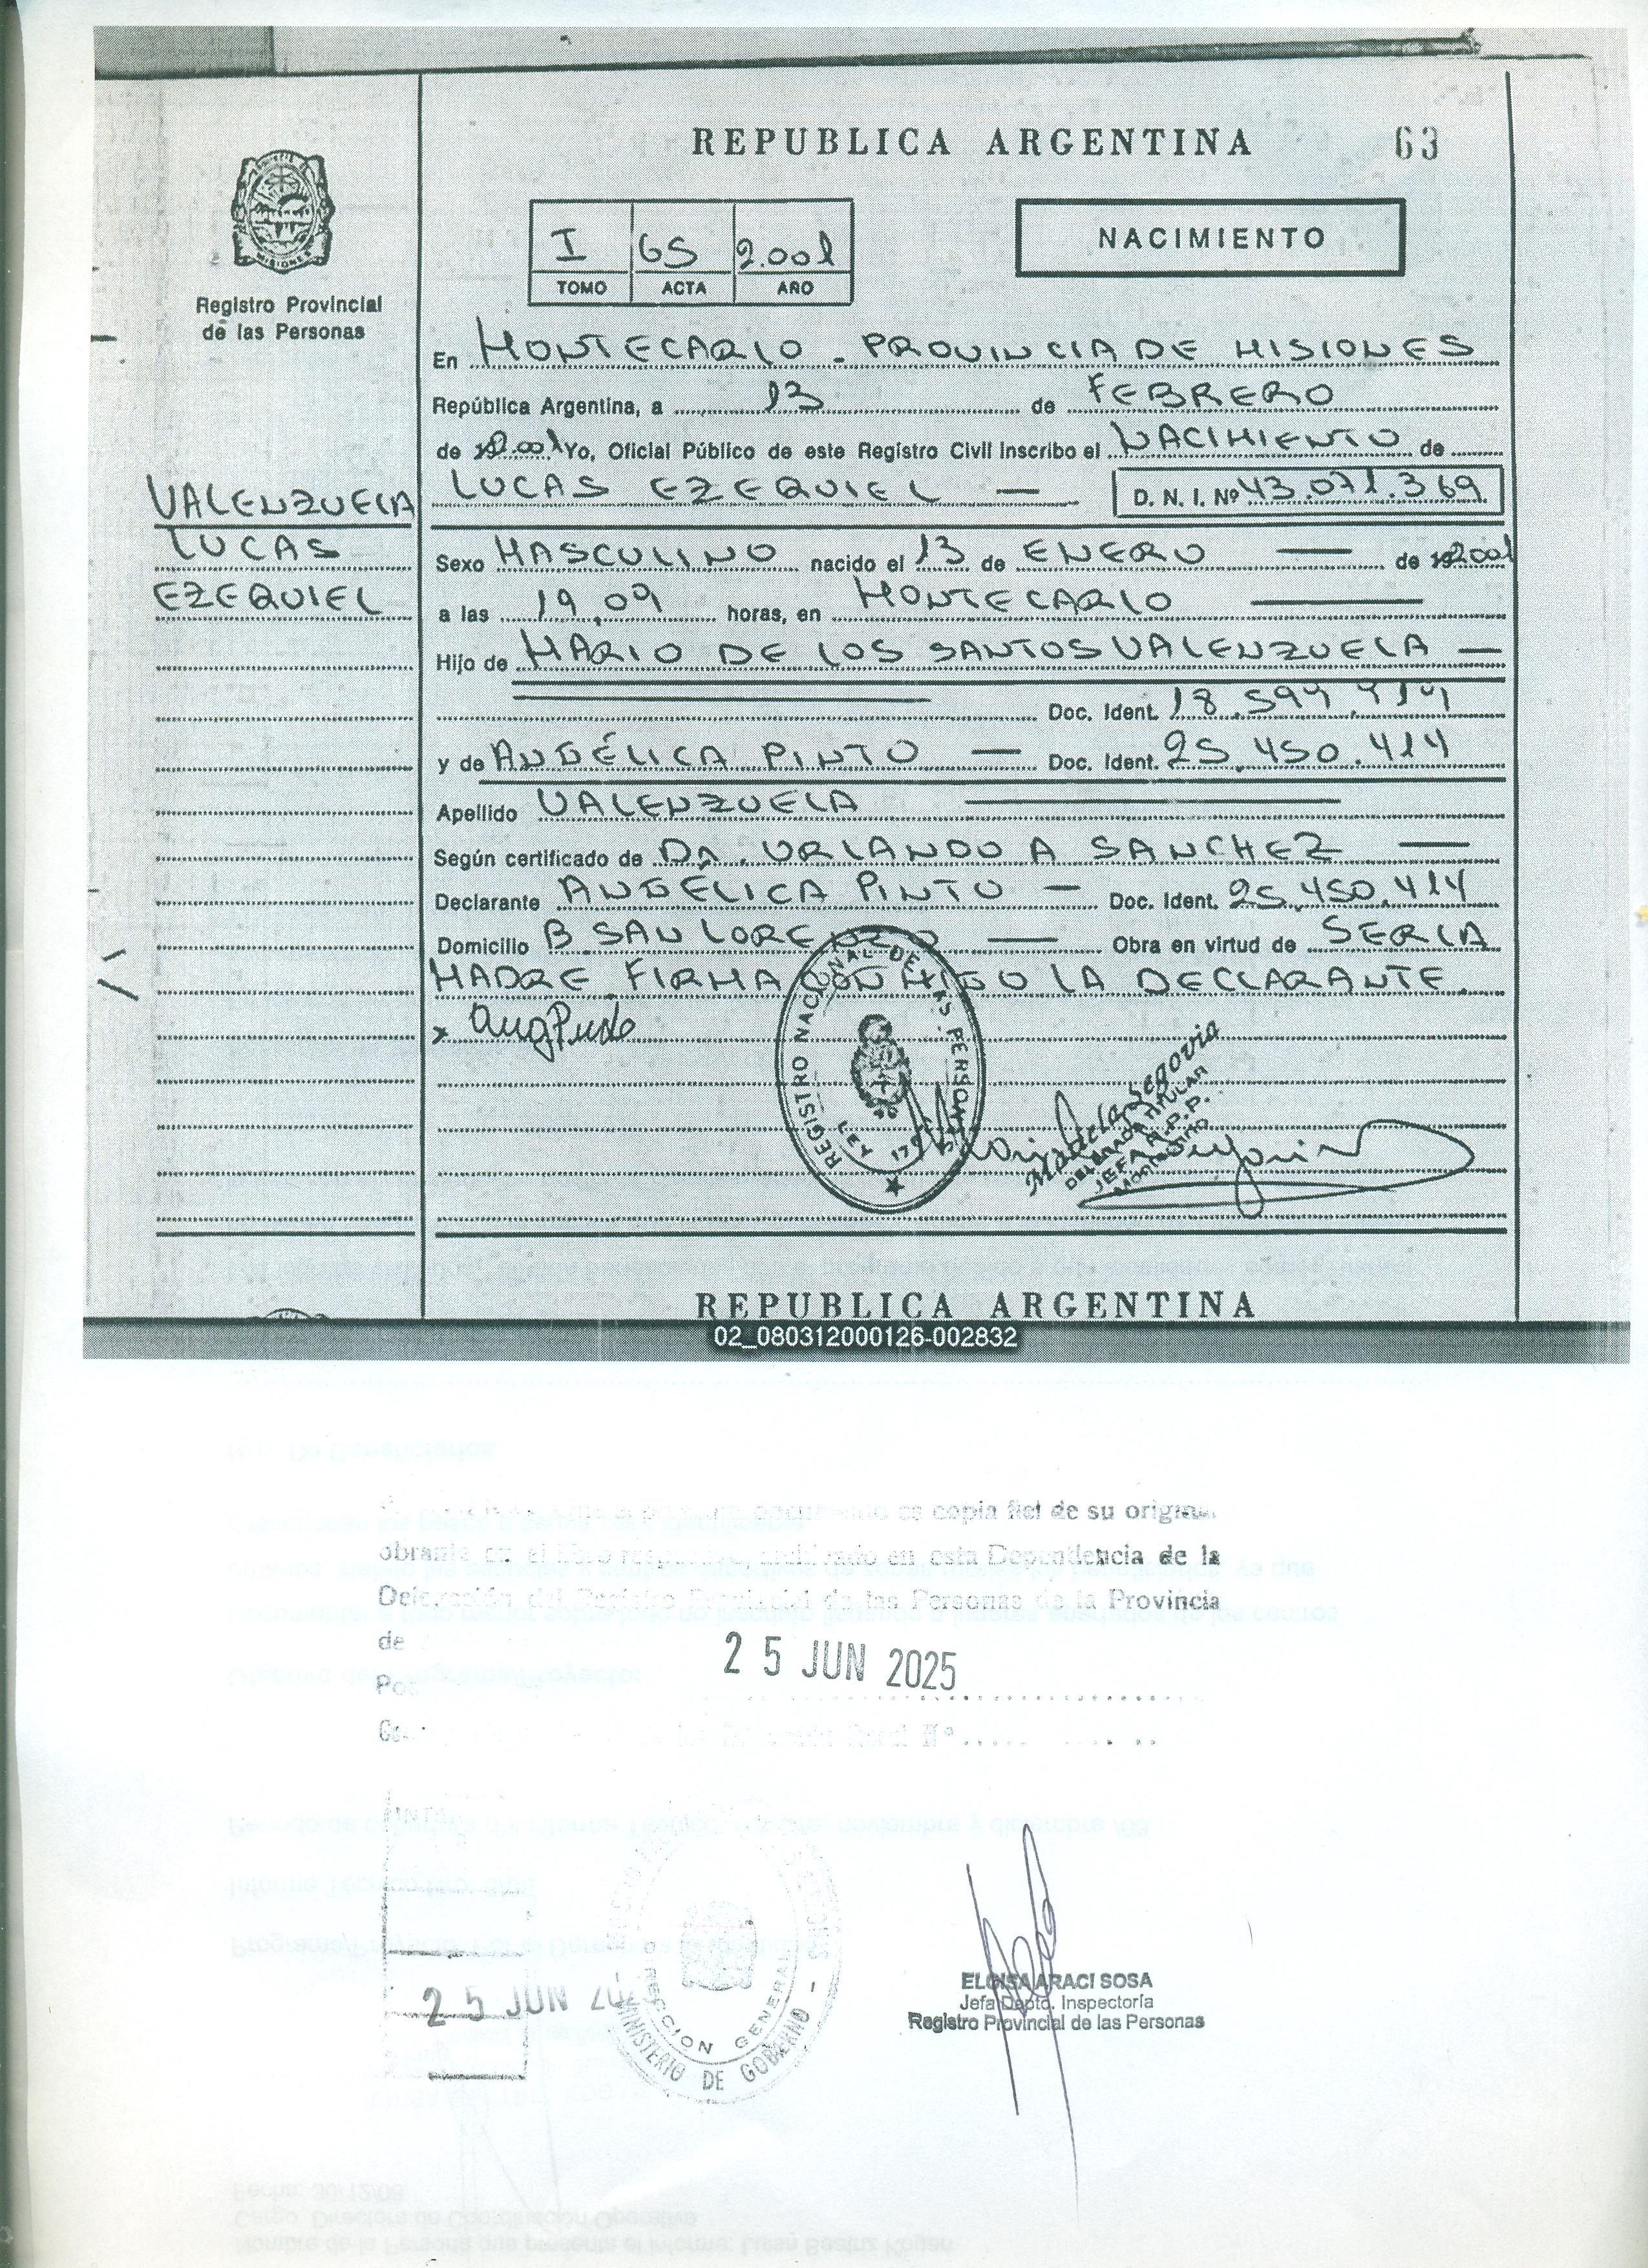 REPUBLICA ARGENTINA 63
MISIONES
Registro Provincial
de las Personas
I 65 2.001
TOMO ACTA AÑO
NACIMIENTO
En MONTECARLO - PROVINCIA DE MISIONES
República Argentina, a 13 de FEBRERO
de 2.001 Yo, Oficial Público de este Registro Civil inscribo el NACIMIENTO de
LUCAS EZEQUIEL — D. N. I. Nº 43.071.369
VALENZUELA
LUCAS
EZEQUIEL
Sexo MASCULINO nacido el 13 de ENERO — de 2001
a las 19,09 horas, en MONTECARLO —
Hijo de MARIO DE LOS SANTOS VALENZUELA —
Doc. Ident. 18.594.414
y de ANGÉLICA PINTO — Doc. Ident. 25.450.414
Apellido VALENZUELA —
Según certificado de DR. ORLANDO A SANCHEZ —
Declarante ANGÉLICA PINTO — Doc. Ident. 25.450.414
Domicilio B SAN LORENZO — Obra en virtud de SER LA
MADRE FIRMA CONMIGO LA DECLARANTE.
REGISTRO NACIONAL DE LAS PERSONAS
LEY
Segovia
DELEGADA TITULAR
JEFA R.P.P.
REPUBLICA ARGENTINA
02_080312000126-002832
es copia fiel de su original
obrante en el libro archivado en esta Dependencia de la
Delegación del Registro Provincial de las Personas de la Provincia
de
25 JUN 2025
Nº
25 JUN
DIRECCION GENERAL
MINISTERIO DE GOBIERNO
ELOISA ARACI SOSA
Jefa Depto. Inspectoría
Registro Provincial de las Personas